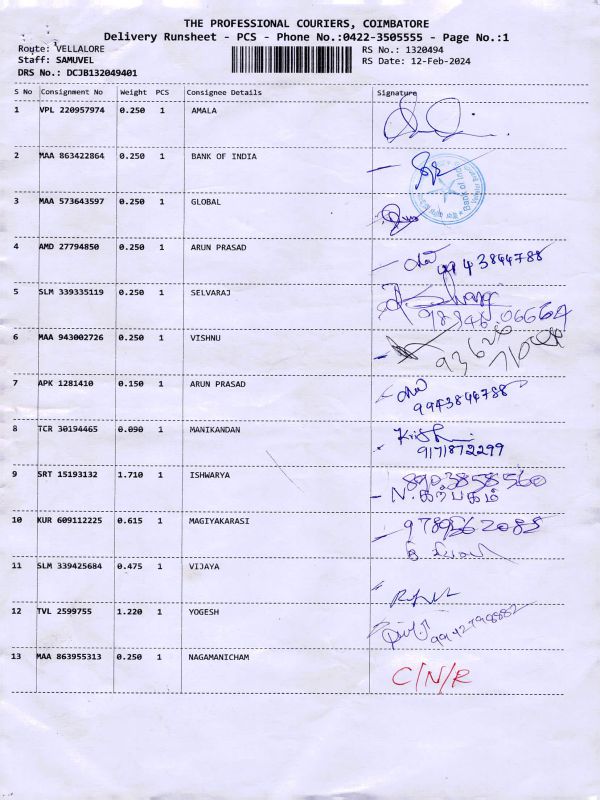 THE PROFESSIONAL COURIERS, COIMBATORE
Delivery Runsheet - PCS - Phone No.:0422-3505555 - Page No.:1
Route: VELLALORE RS No.: 1320494
Staff: SAMUVEL RS Date: 12-Feb-2024
DRS No.: DCJB132049401
S No Consignment No Weight PCS Consignee Details Signature
1 VPL 220957974 0.250 1 AMALA
2 MAA 863422864 0.250 1 BANK OF INDIA
3 MAA 573643597 0.250 1 GLOBAL
4 AMD 27794850 0.250 1 ARUN PRASAD 9943844788
5 SLM 339335119 0.250 1 SELVARAJ
6 MAA 943002726 0.250 1 VISHNU
7 APK 1281410 0.150 1 ARUN PRASAD
9943844788
8 TCR 30194465 0.090 1 MANIKANDAN
9171872299
9 SRT 15193132 1.710 1 ISHWARYA 8903858560
N.கற்பகம்
10 KUR 609112225 0.615 1 MAGIYAKARASI
11 SLM 339425684 0.475 1 VIJAYA
12 TVL 2599755 1.220 1 YOGESH
13 MAA 863955313 0.250 1 NAGAMANICHAM
C/N/R